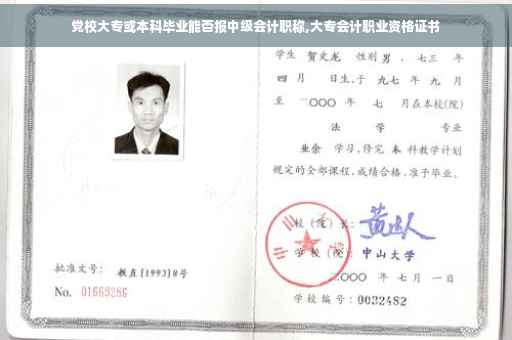 党校大专或本科毕业能否报中级会计职称,大专会计职业资格证书
学生 贺文龙 性别 男 、七三 年
四 月 日生,于 九七 年 九 月
至 二〇〇〇 年 七 月在本校(院)
法 学 专业
业余 学习,修完 本 科教学计划
规定的全部课程,成绩合格,准予毕业。
校(院)长:
学校(院): 中山大学
二〇〇〇 年 七 月 一 日
学校编号: 0032482
批准文号: 教直[1993]8号
No. 01669286